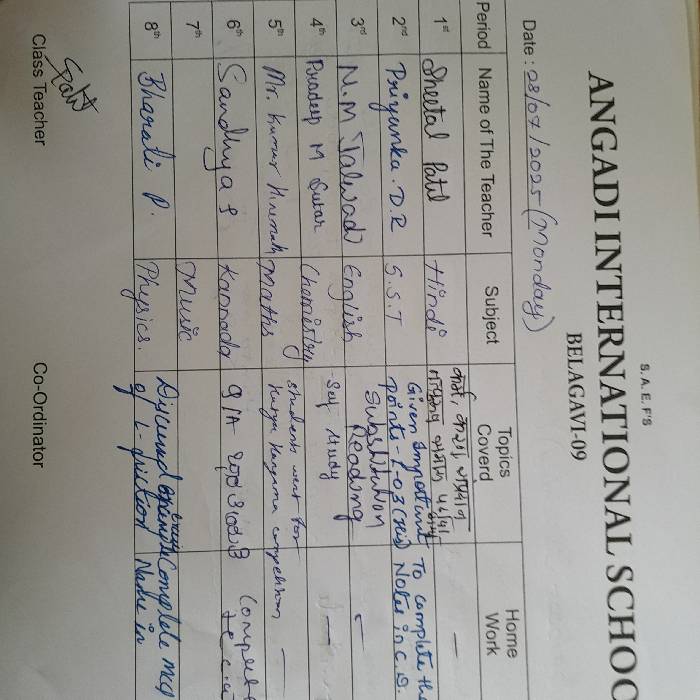 S. A. E. F'S
ANGADI INTERNATIONAL SCHOO
BELAGAVI-09
Date : 28/07/2025 (Monday)
Period Name of The Teacher Subject Topics Coverd Home Work
1st Sheetal Patil Hindi —
2nd Priyanka. D.R S.S.T Given Important points - L-03 (His) To complete the Notes in C.B.
3rd N.M Talwad English Substitution Reading —
4th Pradeep M Sutar Chemistry Self study —
5th Mr. Kumar Hiremath Maths students went for competition —
6th Sandhya S Kannada
7th Music
8th Bharati P. Physics. Discussed of L- friction Complete mcq
Class Teacher Co-Ordinator